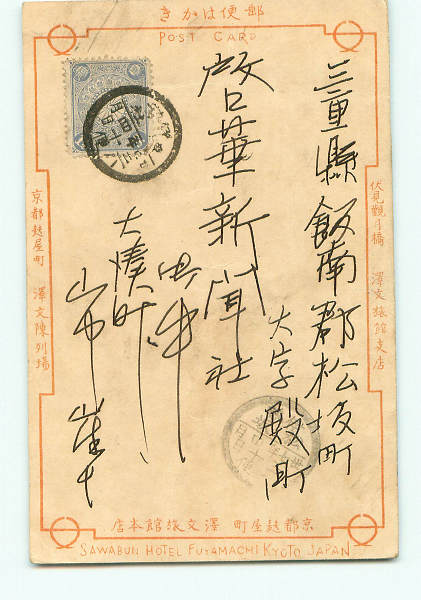 郵便はかき
POST CARD
三重縣飯南郡松坂町
大字殿町
啓華新聞社
大湊町
伏見觀月橋 澤文旅館支店
京都麩屋町 澤文陳列場
京都麩屋町 澤文旅館本店
SAWABUN HOTEL FUYAMACHI KYOTO JAPAN